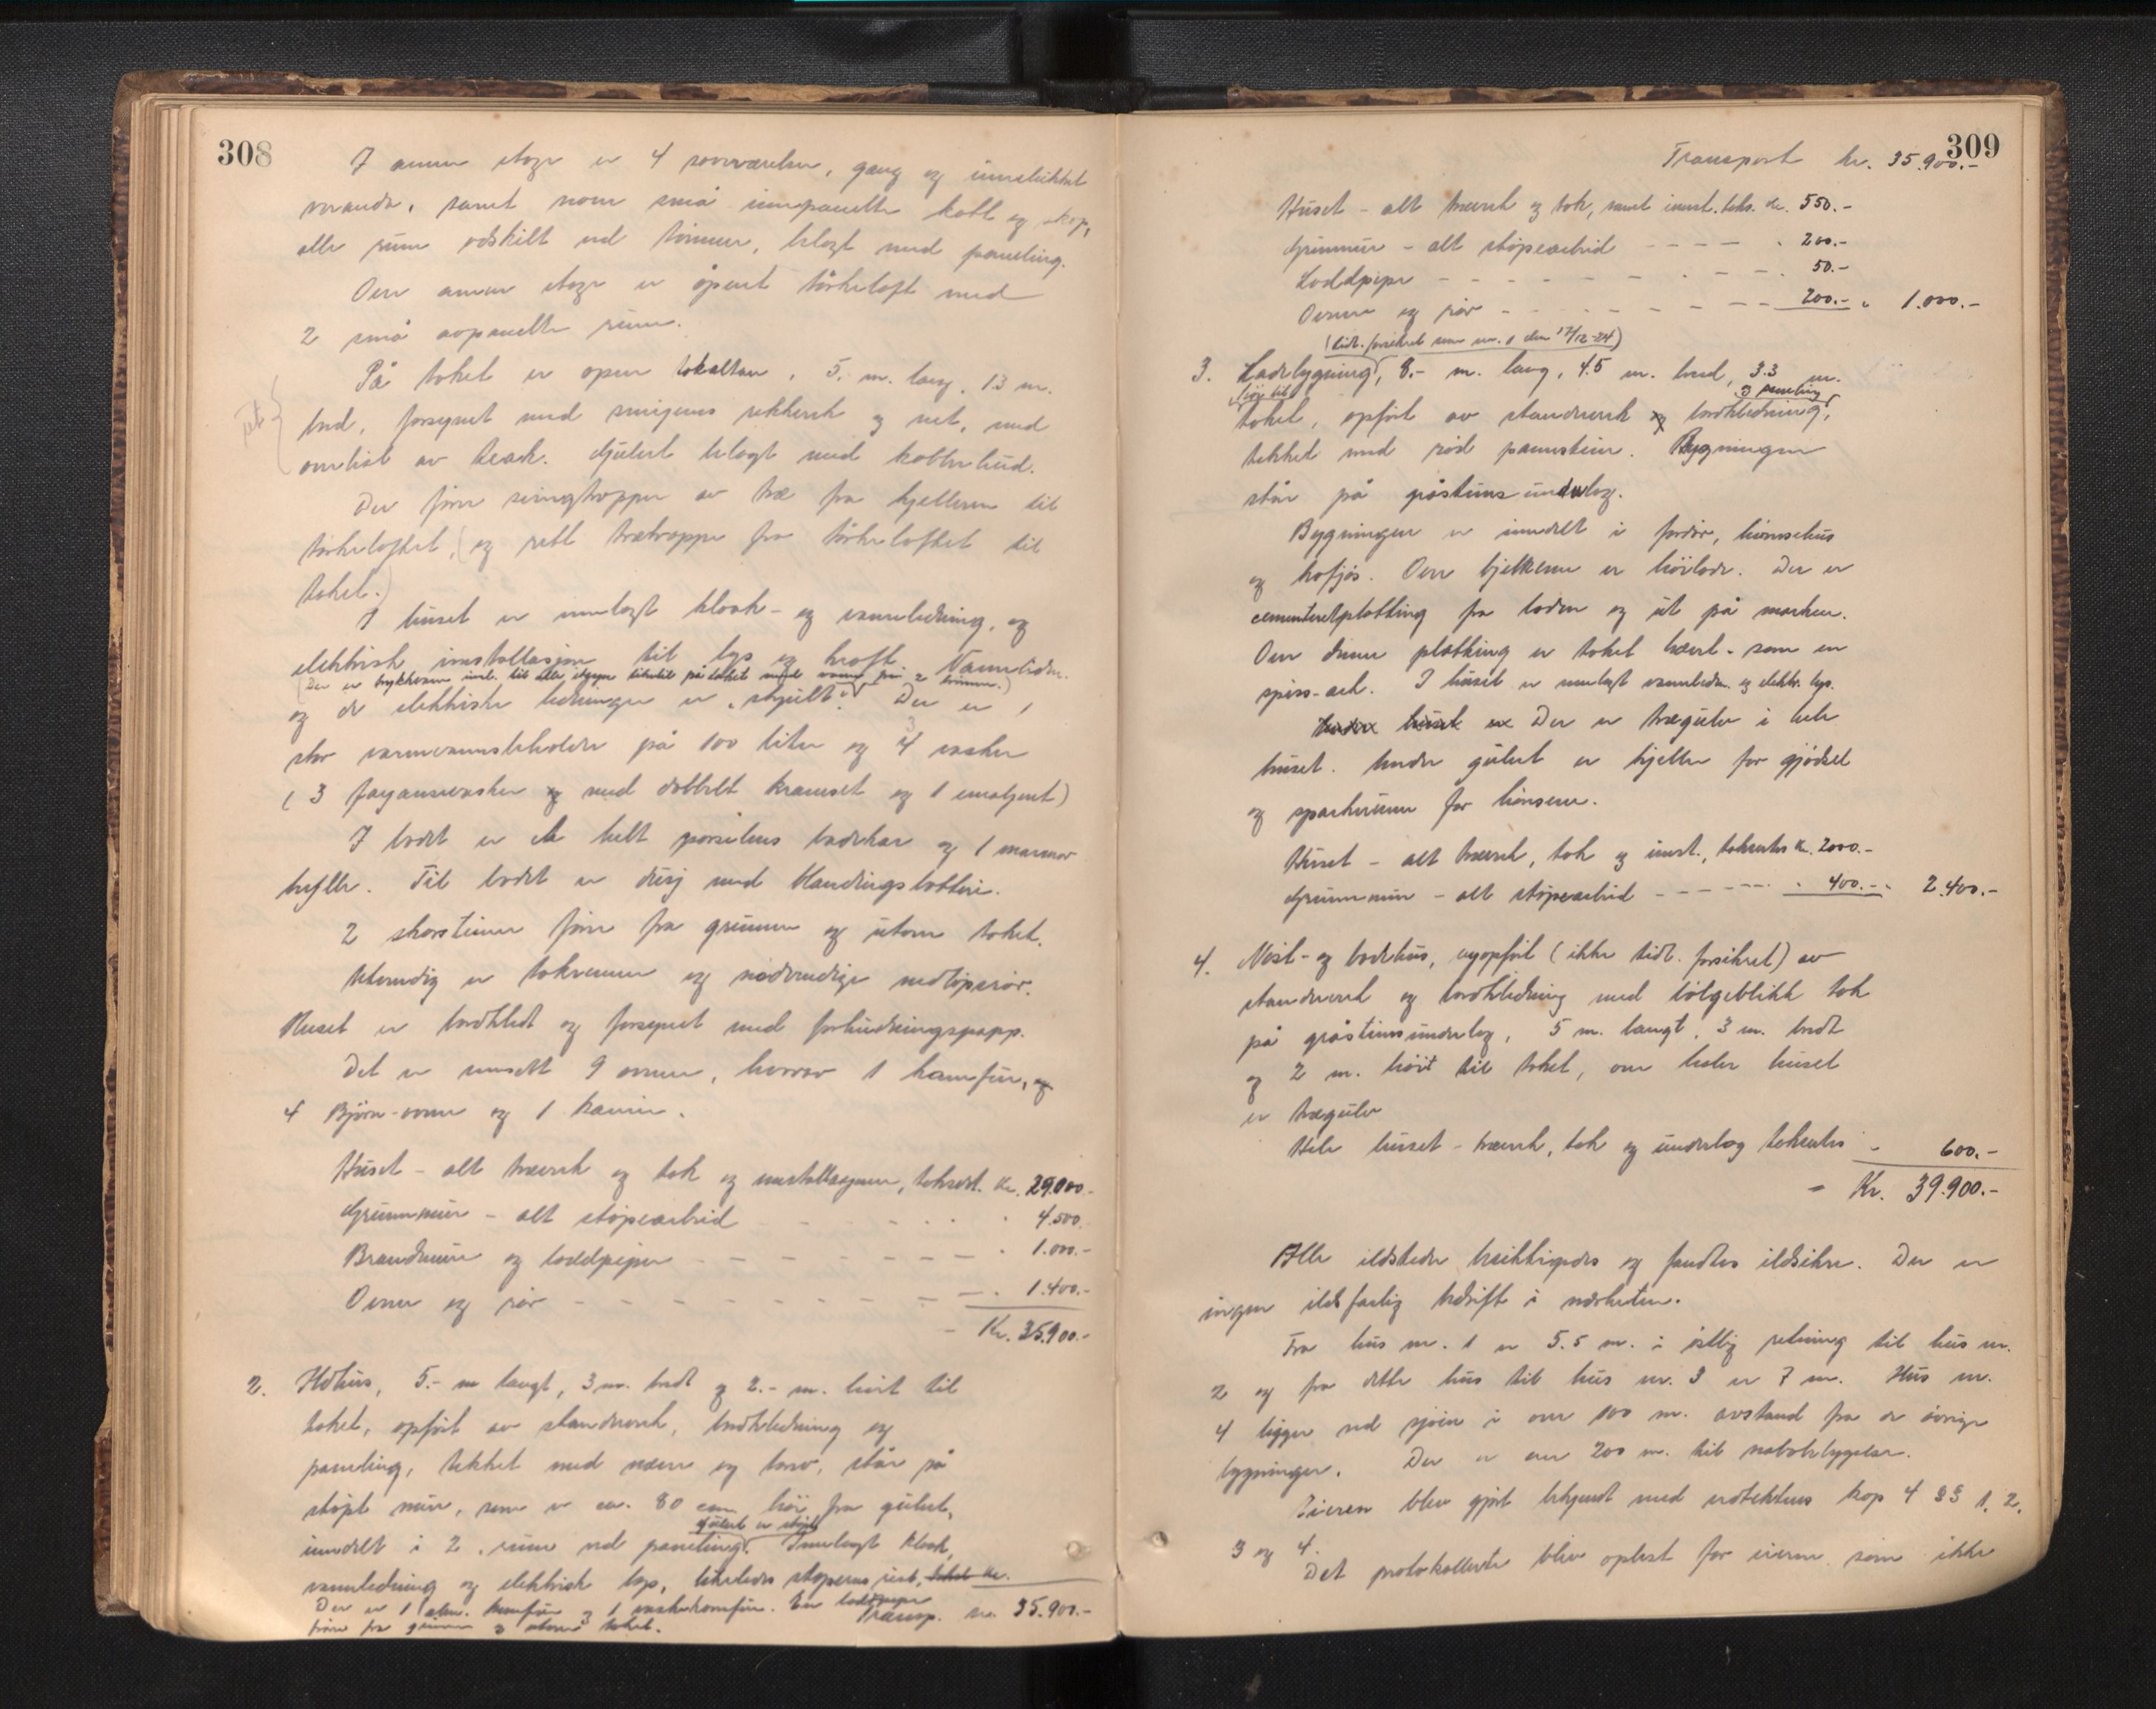 308
I annen etage er 4 soveværelser, gang og innelukket
veranda, samt noen små innpanelte kott og skap,
alle rum adskilt ved tømmer, belagt med paneling.
Over annen etage er åpent tørkeloft med
2 små avpanelte rum.
På taket er open takaltan, 5.- m. lang, 13 m.
bred, forsynet med smijerns rekkverk og net, med
overlist av teack. Gulvet belagt med kobberhud.
Der fører svingtrapper av træ fra kjelleren til
tørkeloftet, (og rett trætrappe fra tørkeloftet til
taket.)
I huset er innlagt kloak- og vannledning, og
elektrisk installasjon til lys og kraft. Vannledn.
(Der er trykkvann innl. til alle etager
og de elektriske ledninger er "skjult". Der er 1
stor varmvannsbeholder på 100 liter og 4 vasker
(3 fayansevasker og med dobbelt kranset og 1 emaljert)
I badet er et helt porselens badekar og 1 marmor
hylle. Til badet er dusj med blandingsbatteri.
2 skorsteiner fører fra grunnen og utover taket.
Utvendig er takrenner og nødvendige nedløpsrør.
Huset er bordkledt og forsynet med forhudningspapp.
Det er innsatt 9 ovner, hvorav 1 komfur, og
4 Bjørn-ovner og 1 kamin.
Huset - alt træverk og tak og installasjoner, takseret. Kr. 29.000.-
Grunnmur - alt støpearbeid - - - 4.500.
Brandmur og loddpiper - - - 1.000.-
Ovner og rør - - - 1.400.-
- Kr. 35.900.-
2. Ildhus, 5.- m langt, 3 m. bredt og 2.- m. høit til
taket, opført av standverk, bordkledning og
paneling, tekket med næver og torv, står på
støpt mur, som er ca. 80 cm høi fra gulvet,
gulvet er støpt
inndelt i 2 rum ved paneling. Innlagt kloak,
vannledning og elektrisk lys,
Der er 1 alm. komfur og 1 vaskekomfur. En loddpipe
fører fra grunnen og utover taket.
Transp. kr. 35.900.-
309
Transport kr. 35.900.-
Huset - alt træverk og tak, samt innst. taks. kr. 550.-
Grunnmur - alt støpearbeid - - - - 200.-
Loddpipe - - - - 50.-
Ovner og rør - - - - 200.- " 1.000.-
(tidl. forsikret som nr. 1 den 17/12-24)
3. Ladebygning, 8.- m. lang, 4.5 m. bred, 3.3 m.
høi til
og paneling
taket, opført av standverk og bordkledning,
tekket med rød pannestein. Bygningen
står på gråsteinsunderlag.
Bygningen er inndelt i fordør, hønsehus
og kofjøs. Over bjelkene er høilade. Der er
cementeret platting fra laden og ut på marken.
Over denne platting er taket hævet - som en
spiss-ark. I huset er innlagt vannledn. og elektr. lys.
Under huset er Der er trægulv i hele
huset. Under gulvet er kjeller for gjødsel
og sparkerum for hønsene.
Huset - alt træverk, tak og innst., takseres Kr. 2000.-
Grunnmur - alt støpearbeid - - - - - " 400.- " 2.400.-
4. Nøst- og badehus, nyopført (ikke tidl. forsikret) av
standverk og bordkledning med bølgeblikk tak
på gråsteinsunderlag, 5 m. langt, 3 m. bredt
og 2 m. høit til taket, over hele huset
er trægulv
Hele huset - træverk, tak og underlag takseres - 600.-
= Kr. 39.900.-
Alle ildsteder besiktigedes og fandtes ildsikre. Der er
ingen ildsfarlig bedrift i nærheten.
Fra hus nr. 1 er 5.5 m. i østlig retning til hus nr.
2 og fra dette hus til hus nr. 3 er 7 m. Hus nr.
4 ligger ved sjøen i over 100 m. avstand fra de øvrige
bygninger. Der er over 200 m. til nabobebygelse.
Eieren blev gjort bekjendt med vedtektens kap 4 §§ 1. 2.
3 og 4.
Det protokollerte blev oplest for eieren som ikke